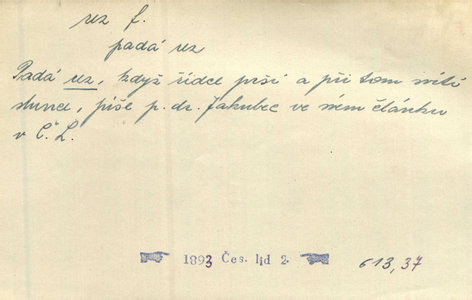 rez f.
padá rez
Padá rez, když řídce prší a při tom svítí
slunce, píše p. dr. Jakubec ve svém článku
v Č. L.
1893 Čes. lid 2.
613,37